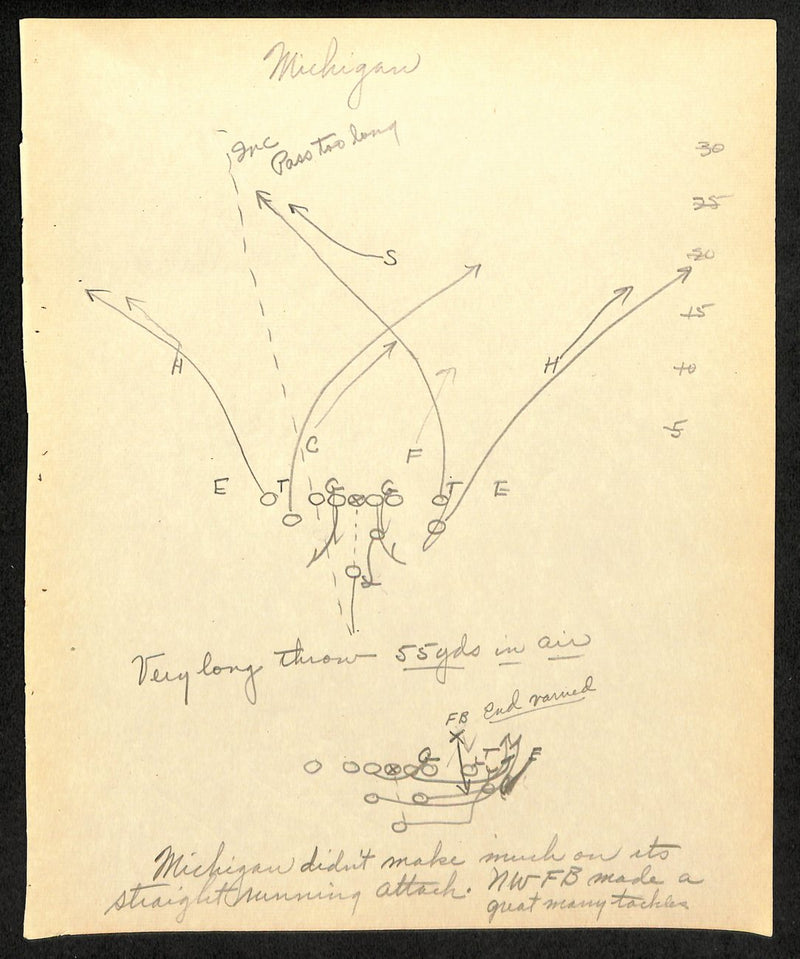 Michigan
Inc
Pass too long
30
25
S
20
15
H
H
10
5
C
F
E T G G T E
Very long throw 55 yds in air
FB End varied
G T E
Michigan didn't make much on its
straight running attack. NW FB made a
great many tackles